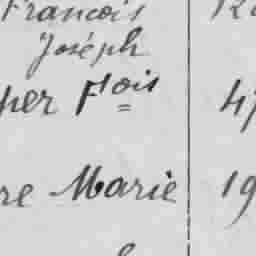 François
Joséph
per Fçois 47
re Marie 19